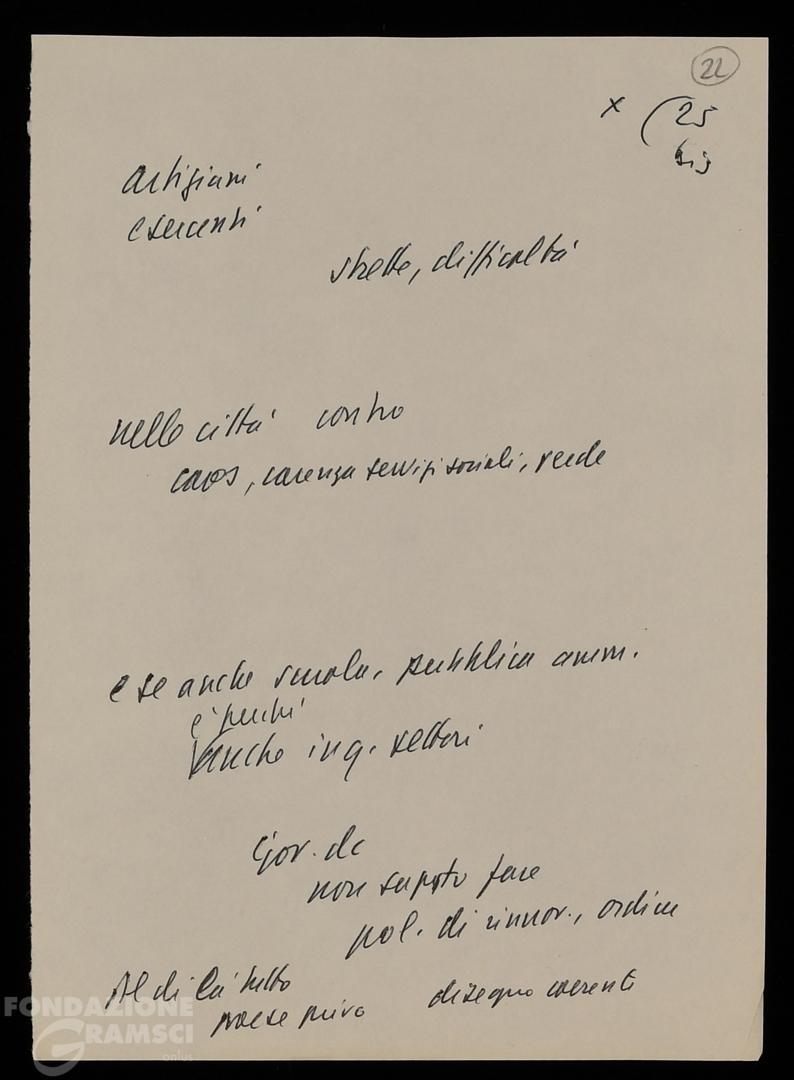 22
x (25
bis
Artigiani
esercenti
strette, difficoltà
nelle città contro
caos, carenza servizi sociali, verde
e se anche scuola, pubblica amm.
è perché
anche in q. settori
Gov. dc
non saputo fare
pol. di rinnov., ordine
Al di là tutto
paese privo disegno coerente
FONDAZIONE
GRAMSCI
onlus